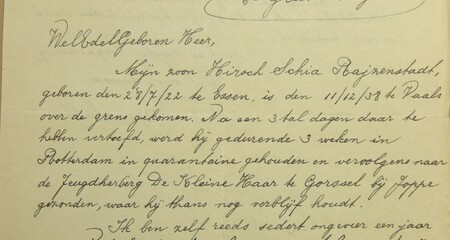 WelEdelGeboren Heer,
Mijn zoon Hirsch Schia Rajzenstadt,
geboren den 28/7/22 te Essen, is den 11/12/38 te Vaals
over de grens gekomen. Na een 3 tal dagen daar te
hebben vertoefd, werd hij gedurende 3 weken in
Rotterdam in quarantaine gehouden en vervolgens naar
de Jeugdherberg De Kleine Haar te Gorssel bij Joppe
gezonden, waar hij thans nog verblijf houdt.
Ik ben zelf reeds sedert ongeveer een jaar